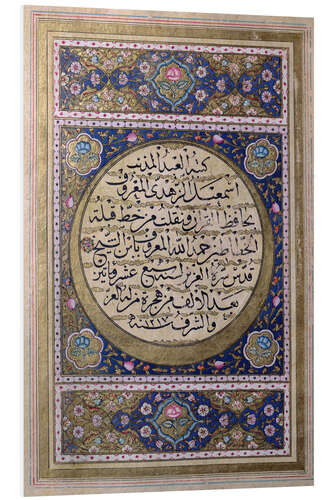 كتبه العبد المذنب
اسمعيل الزهدى المعروف
بحافظ القرآن ونقلت من خط قبلة
الخطاطين حمد الله المعروف بابن الشيخ
قدس سره العزيز لسنة سبع عشر ومأتين
بعد الألف من هجرة من له العز
والشرف ١٢١٧ سنة